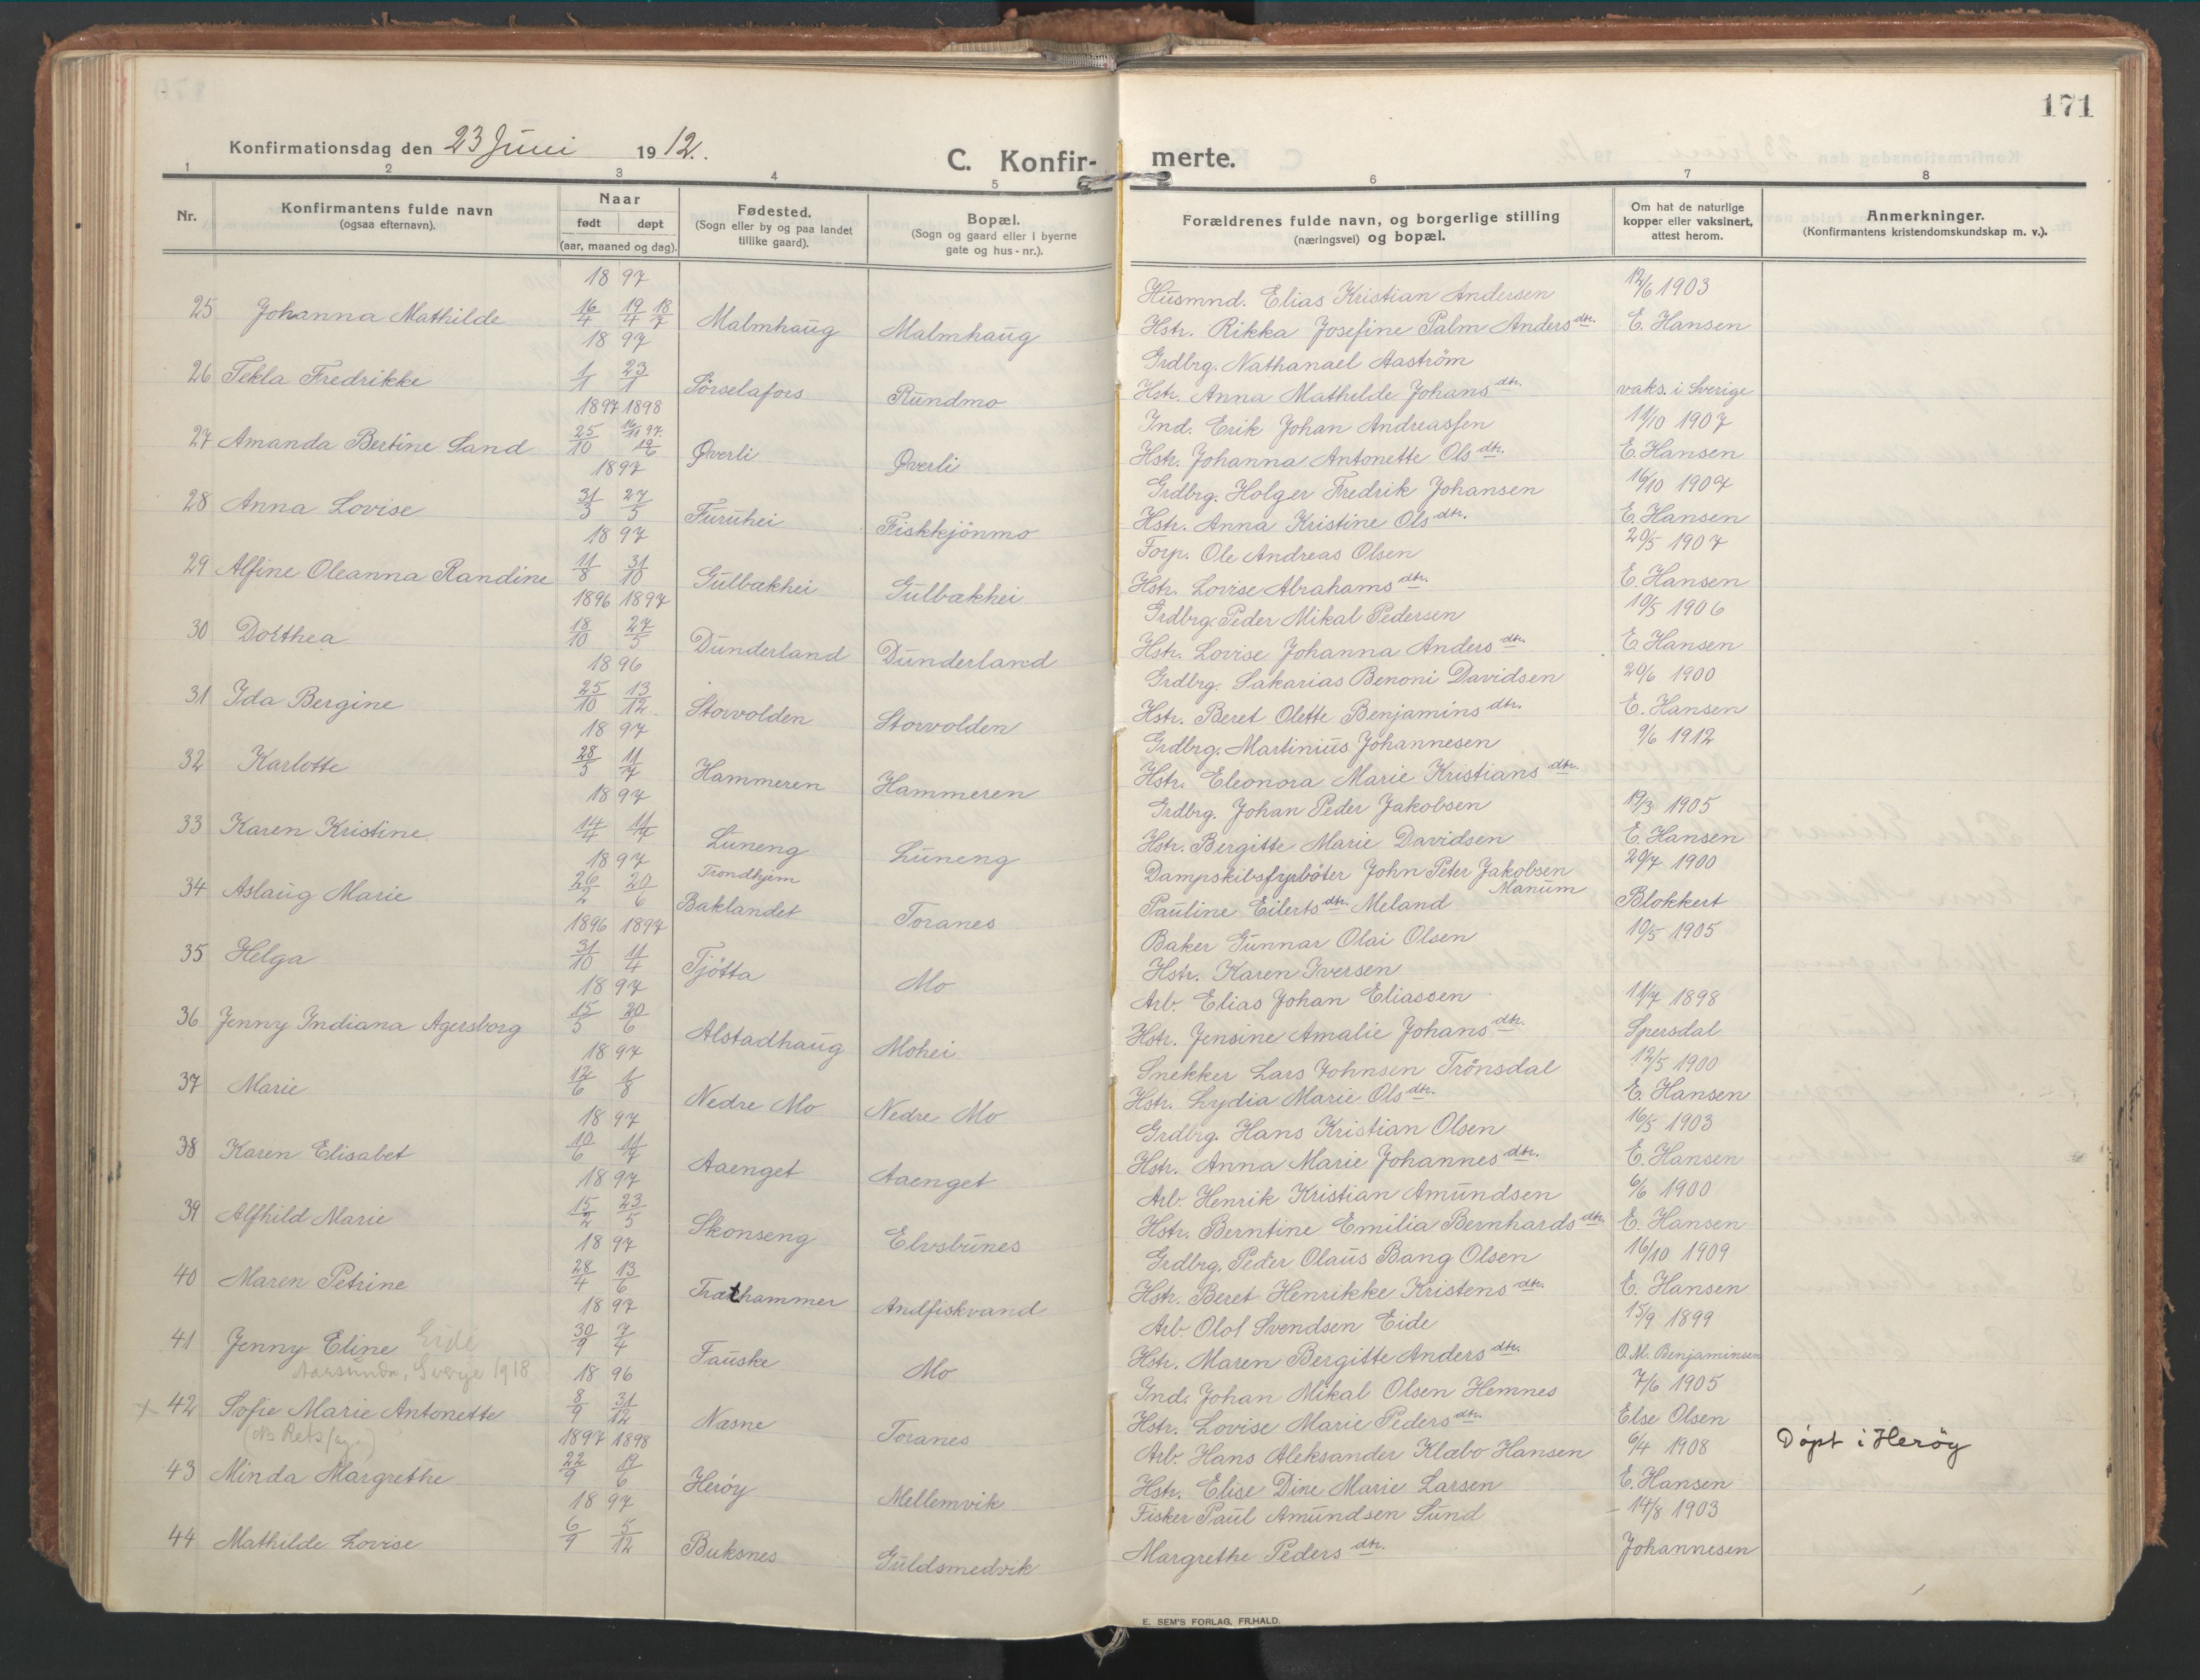 171
Konfirmationsdag den 23 Juni 1912.
C. Konfir- merte.
1 2 3 4 5 6 7 8
Nr.
Konfirmantens fulde navn
(ogsaa efternavn).
Naar
født døpt
(aar, maaned og dag).
Fødested.
(Sogn eller by og paa landet
tillike gaard).
Bopæl.
(Sogn og gaard eller i byerne
gate og hus-nr.).
Forældrenes fulde navn, og borgerlige stilling
(næringsvei) og bopæl.
Om hat de naturlige
kopper eller vaksinert,
attest herom.
Anmerkninger.
(Konfirmantens kristendomskundskap m. v.).
1897 Husmnd. Elias Kristian Andersen 12/6 1903
25 Johanna Mathilde 16/4 19/4 18/7 Malmhaug Malmhaug Hstr. Rikka Josefine Palm Anders dtr. E. Hansen
1897 Grdbrg. Nathanael Aaström
26 Tekla Fredrikke 1/1 23/1 Sörselafors Rundmo Hstr. Anna Mathilde Johans dtr. vaks. i Sverige
1897 1898 Ind. Erik Johan Andreassen 11/10 1907
27 Amanda Bertine Sand 25/10 14/11 97. 19/6 Øverli Øverli Hstr. Johanna Antonette Ols dtr. E. Hansen
1897 Grdbrg. Holger Fredrik Johansen 16/10 1907
28 Anna Lovise 31/3 27/5 Furuhei Fiskkjönmo Hstr. Anna Kristine Ols dtr. E. Hansen
1897 Forp. Ole Andreas Olsen 20/5 1907
29 Alfine Oleanna Randine 11/8 31/10 Gulbakhei Gulbakkei Hstr. Lovise Abrahams dtr. E. Hansen
1896 1897 Grdbrg. Peder Mikal Pedersen 10/5 1906
30 Dorthea 18/10 27/5 Dunderland Dunderland Hstr. Lovise Johanna Anders dtr. E. Hansen
1896 Grdbrg. Sakarias Benoni Davidsen 20/6 1900
31 Ida Bergine 25/10 13/12 Storvolden Storvolden Hstr. Beret Olette Benjamins dtr. E. Hansen
1897 Grdbrg. Martinius Johannesen 9/6 1912
32 Karlotte 28/5 11/7 Hammeren Hammeren Hstr. Eleonora Marie Kristians dtr.
1897 Grdbrg. Johan Peder Jakobsen 19/3 1905
33 Karen Kristine 14/4 11/7 Luneng Luneng Hstr. Bergitte Marie Davidsen E. Hansen
1897 Trondhjem Dampskibsfyrböter John Peter Jakobsen Manum 20/7 1900
34 Aslaug Marie 26/2 20/6 Baklandet Toranes Pauline Eilerts dtr. Meland Blokkert
1896 1897 Baker Gunnar Olai Olsen 10/5 1905
35 Helga 31/10 11/4 Tjötta Mo Hstr. Karen Iversen
1897 Arb. Elias Johan Eliassen 11/7 1898
36 Jenny Indiana Agersborg 15/5 20/6 Alstadhaug Mohei Hstr. Jensine Amalie Johans dtr. Spersdal
1897 Snekker Lars Johnsen Trönsdal 12/5 1900
37 Marie 12/6 1/8 Nedre Mo Nedre Mo Hstr. Lydia Marie Ols dtr. E. Hansen
1897 Grdbrg. Hans Kristian Olsen 16/5 1903
38 Karen Elisabet 10/6 11/7 Aaenget Aaenget Hstr. Anna Marie Johannes dtr. E. Hansen
1897 Arb. Henrik Kristian Amundsen 6/6 1900
39 Alfhild Marie 15/2 23/5 Skonseng Elvsbunes Hstr. Berntine Emilia Bernhards dtr. E. Hansen
1897 Grdbrg. Peder Olaus Bang Olsen 16/10 1909
40 Maren Petrine 28/4 13/6 Trathammer Andfiskvand Hstr. Beret Henrikke Kristens dtr. E. Hansen
1897 Arb. Olof Svendsen Eide 15/9 1899
41 Jenny Eline Eide 30/9 7/4 Fauske Mo Hstr. Maren Bergitte Anders dtr. O. M. Benjaminsen
Aarsunda, Sverje 1918 1896 Ind. Johan Mikal Olsen Hemnes 7/6 1905
x 42 Sofie Marie Antonette 8/9 31/12 Næsne Toranes Hstr. Lovise Marie Peders dtr. Else Olsen
1897 1898 Arb. Hans Aleksander Klæbo Hansen 6/4 1908 Döpt i Heröy
43 Minda Margrethe 22/9 19/6 Heröy Mellemvik Hstr. Elise Dine Marie Larsen E. Hansen
1897 Fisker Paul Amundsen Sund 14/8 1903
44 Mathilde Lovise 6/9 5/12 Buksnes Guldsmedvik Margrethe Peders dtr. Johannesen
E. SEM'S FORLAG, FR.HALD.